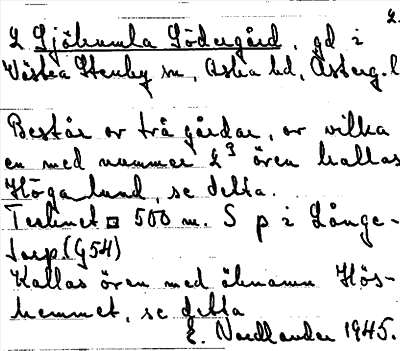 2.
2 Sjökumla Södergård, gd i
Västra Stenby sn, Aska hd, Österg. l
Består av två gårdar, av vilka
en med nummer 2³ även kallas
Höga lund, se detta.
Tecknet □ 500 m. S p i Långe-
torp (G54)
Kallas även med öknamn Hös-
hemmet, se detta
E. Nordlander 1945.